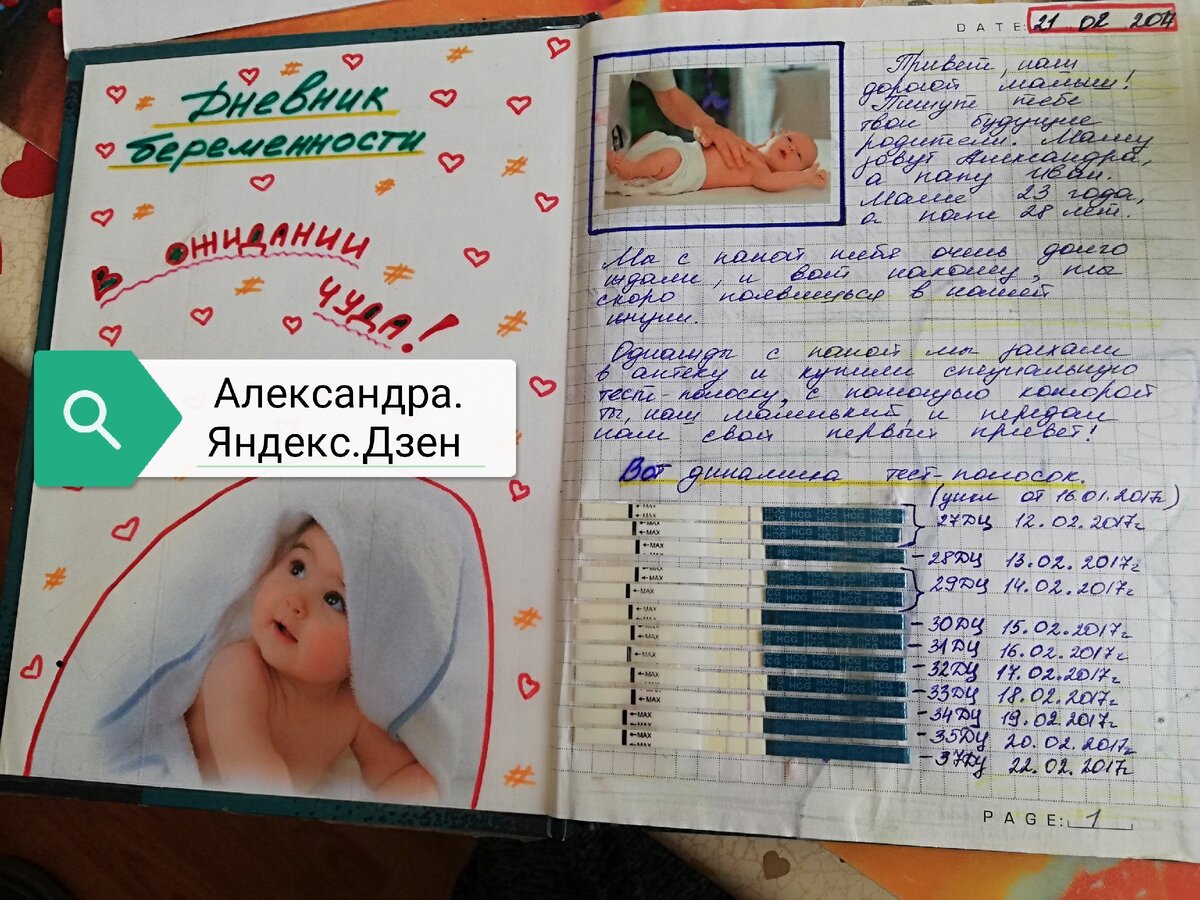 Дневник
беременности
В ОЖИДАНИИ
ЧУДА!
Александра.
Яндекс.Дзен
DATE: 21 02 2017
Привет, наш
дорогой малыш!
Пишут тебе
твои будущие
родители. Маму
зовут Александра,
а папу Иван.
Маме 23 года,
а папе 28 лет.
Мы с папой тебя очень долго
ждали, и вот наконец, ты
скоро появишься в нашей
жизни.
Однажды с папой мы заехали
в аптеку и купили специальную
тест-полоску, с помощью которой
ты, наш маленький и передал
нам свой первый привет!
Вот динамика тест-полосок.
(цикл от 16.01.2017г)
27ДЦ 12.02.2017г
-28ДЦ 13.02.2017г
29ДЦ 14.02.2017г
-30ДЦ 15.02.2017г
-31ДЦ 16.02.2017г
-32ДЦ 17.02.2017г
-33ДЦ 18.02.2017г
-34ДЦ 19.02.2017г
-35ДЦ 20.02.2017г
-37ДЦ 22.02.2017г
←MAX HCG HCG HCG HCG
PAGE: 1